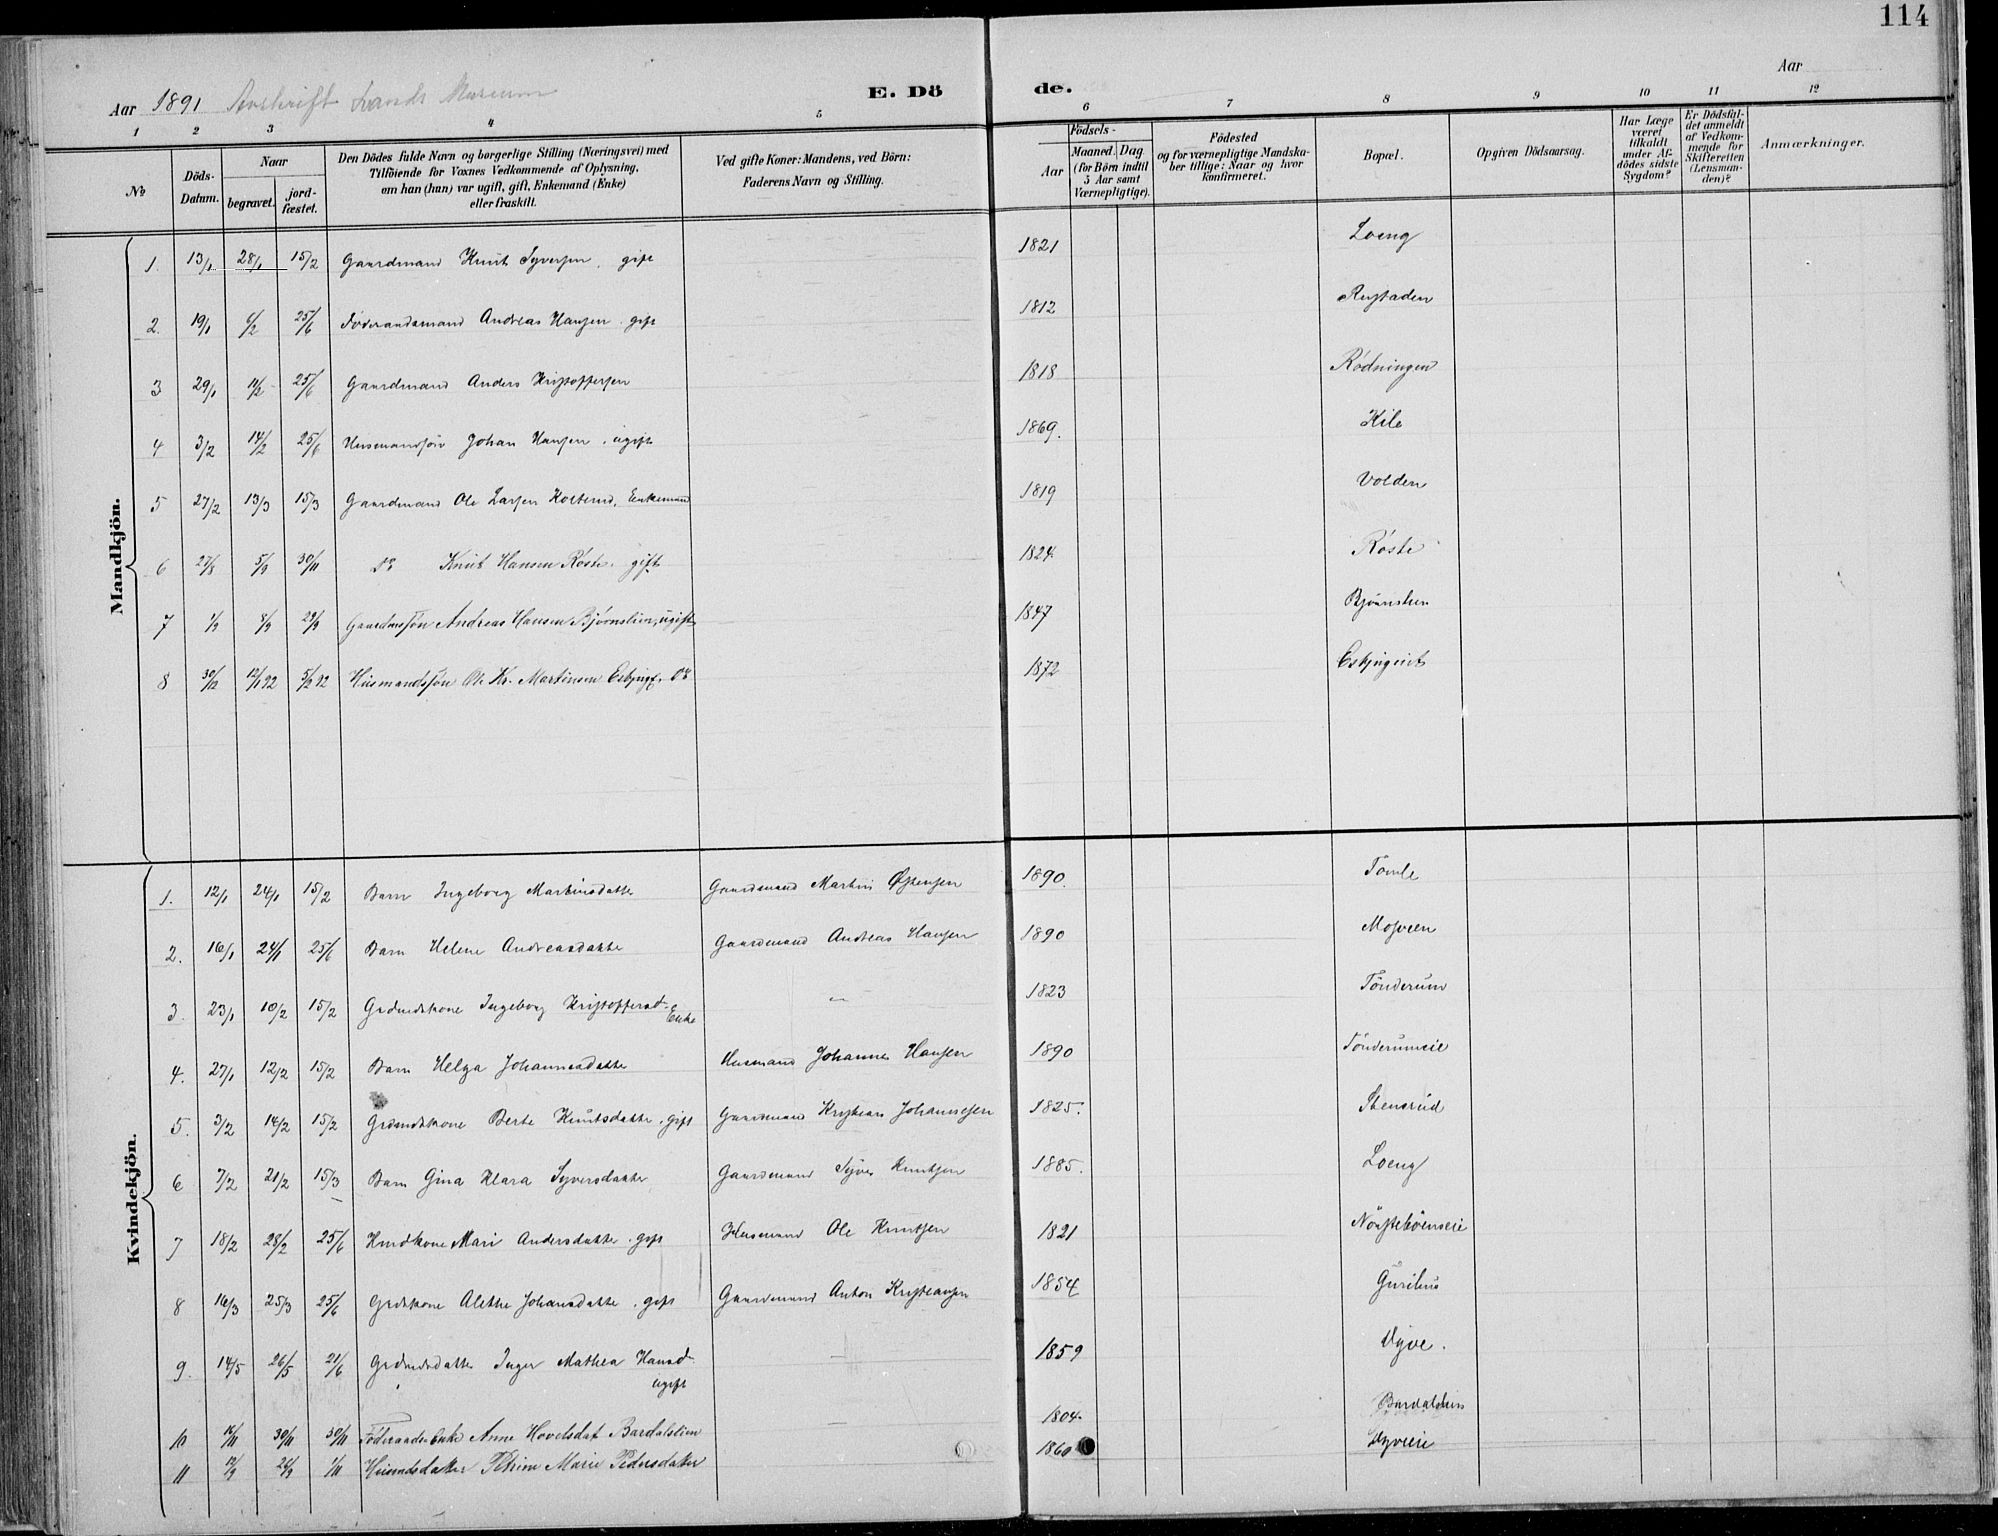 114
Aar 1891 Avskrift Lands Museum E. Dö de. Aar
1 2 3 4 5 6 7 8 9 10 11 12
No
Döds-Datum.
Naar
begravet.
jord-fæstet.
Den Dödes fulde Navn og borgerlige Stilling (Næringsvei) med
Tilföiende for Voxnes Vedkommende af Oplysning,
om han (hun) var ugift, gift, Enkemand (Enke)
eller fraskilt.
Ved gifte Koner: Mandens, ved Börn:
Faderens Navn og Stilling.
Födsels-
Aar
Maaned. Dag
(for Börn indtil
5 Aar samt
Værnepligtige).
Födested
og for værnepligtige Mandska-
ber tillige: Naar og hvor
konfirmeret.
Bopæl.
Opgiven Dödsaarsag.
Har Læge
været
tilkaldt
under Af-
dödes sidste
Sygdom?
Er Dödsfal-
det anmeldt
af Vedkom-
mende for
Skifteretten
(Lensman-
den)?
Anmærkninger.
Mandkjön.
1. 13/1 28/1 15/2 Gaardmand Knut Syversen, gift 1821 Loeng
2. 19/1 6/2 25/6 Föderaadsmand Andreas Hansen, gift 1812 Rustaden
3 29/1 11/2 25/6 Gaardmand Anders Kristoffersen 1818 Rödningen
4 3/2 14/2 25/6 Husmandssön Johan Hansen, ugift 1869. Kile
5 27/2 13/3 15/3 Gaardmand Ole Larsen Kolterud, Enkemand 1819 Volden
6 27/8 5/9 30/11 do Knut Hansen Röste, gift 1824. Röste
7 1/9 8/9 29/9 Gaardmssön Andreas Hansen Björnslien, ugift 1847 Björnslien
8 30/12 12/1 92 5/2 92 Husmandssön Ole Kr. Martinsen Esbjuge, do 1872 Esbjugeiet
Kvindekjön.
1. 12/1 24/1 15/2 Barn Ingeborg Martinsdatte Gaardmand Martin Östensen 1890. Tömle
2. 16/1 24/1 25/6 Barn Helene Andreasdatte Gaardmand Andreas Hansen 1890 Mosveen
3. 23/1 10/2 15/2 Grdmdskone Ingeborg Kristoffersd. Enke — 1823 Tönderum
4. 27/1 12/2 15/2 Barn Helga Johannesdatte Husmand Johannes Hansen 1890 Tönderumeie
5. 3/2 14/2 15/2 Grdmdskone Berte Knutsdatte, gift Gaardmand Kristian Johannesen 1825. Stensrud
6 7/2 21/2 15/3 Barn Gina Klara Syversdatte Gaardmand Syver Knutsen 1885. Loeng
7 18/2 28/2 25/6 Husmdkone Mari Andersdatte, gift Husmand Ole Knutsen 1821 Nörsteböenseie
8 16/3 25/3 25/6 Grdskone Alethe Johansdatte, gift Gaardmand Anton Kristiansen 1854 Gurihus
9. 14/5 26/5 21/6 Grdmdsdatte Inger Mathea Hansd. ugift — 1859 Dyve.
10 16/11 30/11 30/11 Föderaads-Enke Anne Hovelsdat Bardalslien — 1804. Bardalslien
11 12/9 26/9 1/11 Husmdsdatter Petrine Marie Pedersdatter 1860 Dyveeie